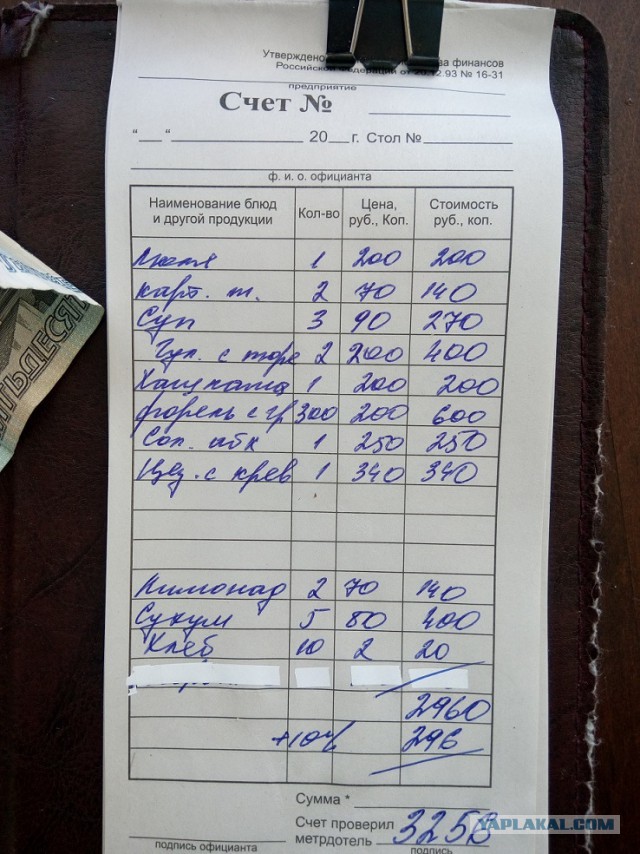 Утверждено ва финансов
Российской Федерации от 20.12.93 № 16-31
предприятие
Счет №
"__" 20__ г. Стол №
ф. и. о. официанта
Наименование блюд и другой продукции Кол-во Цена, руб., Коп. Стоимость руб., коп.
1 200 200
карт. т. 2 70 140
Суп 3 90 270
с 2 200 400
Хашлама 1 200 200
форель с гр 300 200 600
1 250 250
Цез. с крев 1 340 340
Лимонад 2 70 140
Сухум 5 80 400
Хлеб 10 2 20
2960
+10% 296
Сумма *
Счет проверил
метрдотель 325
подпись официанта подпись
YAPLAKAL.COM
ТЬДЕСЯТ